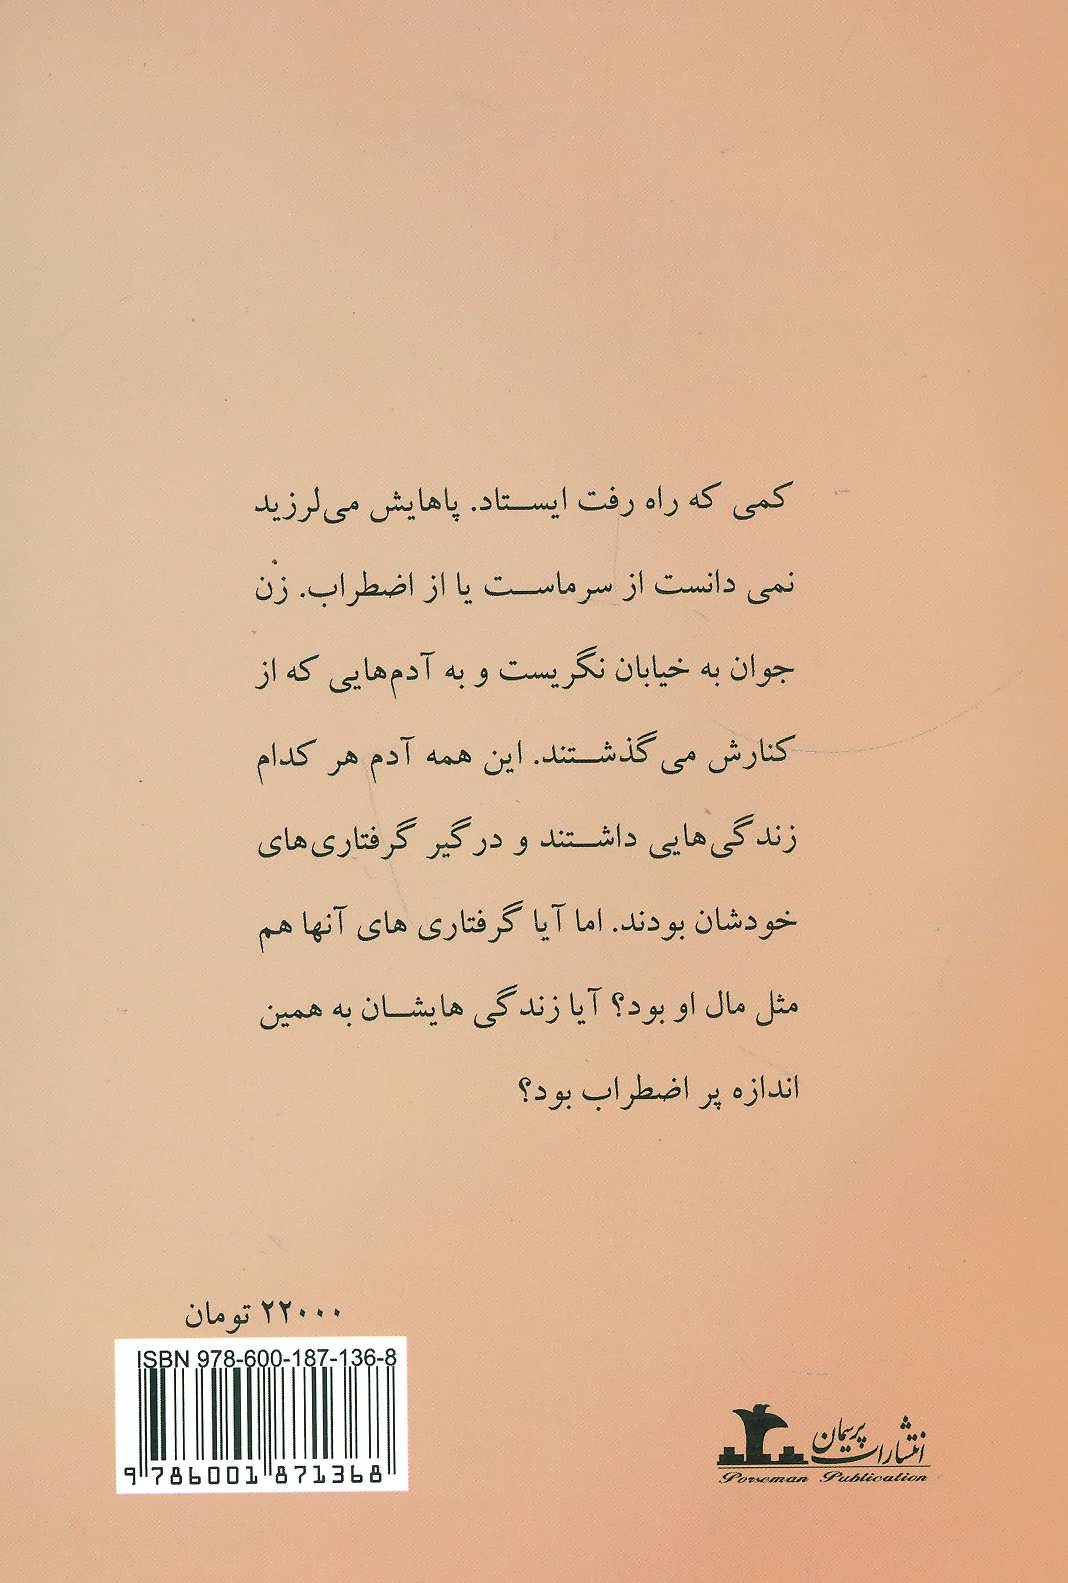 کمی که راه رفت ایستاد. پاهایش می‌لرزید
نمی دانست از سرماست یا از اضطراب. زن
جوان به خیابان نگریست و به آدم‌هایی که از
کنارش می گذشتند. این همه آدم هر کدام
زندگی‌هایی داشتند و درگیر گرفتاری‌های
خودشان بودند. اما آیا گرفتاری های آنها هم
مثل مال او بود؟ آیا زندگی هایشان به همین
اندازه پر اضطراب بود؟
۲۲۰۰۰ تومان
ISBN 978-600-187-136-8
9 786001 871368
انتشارات پرسمان
Porseman Publication